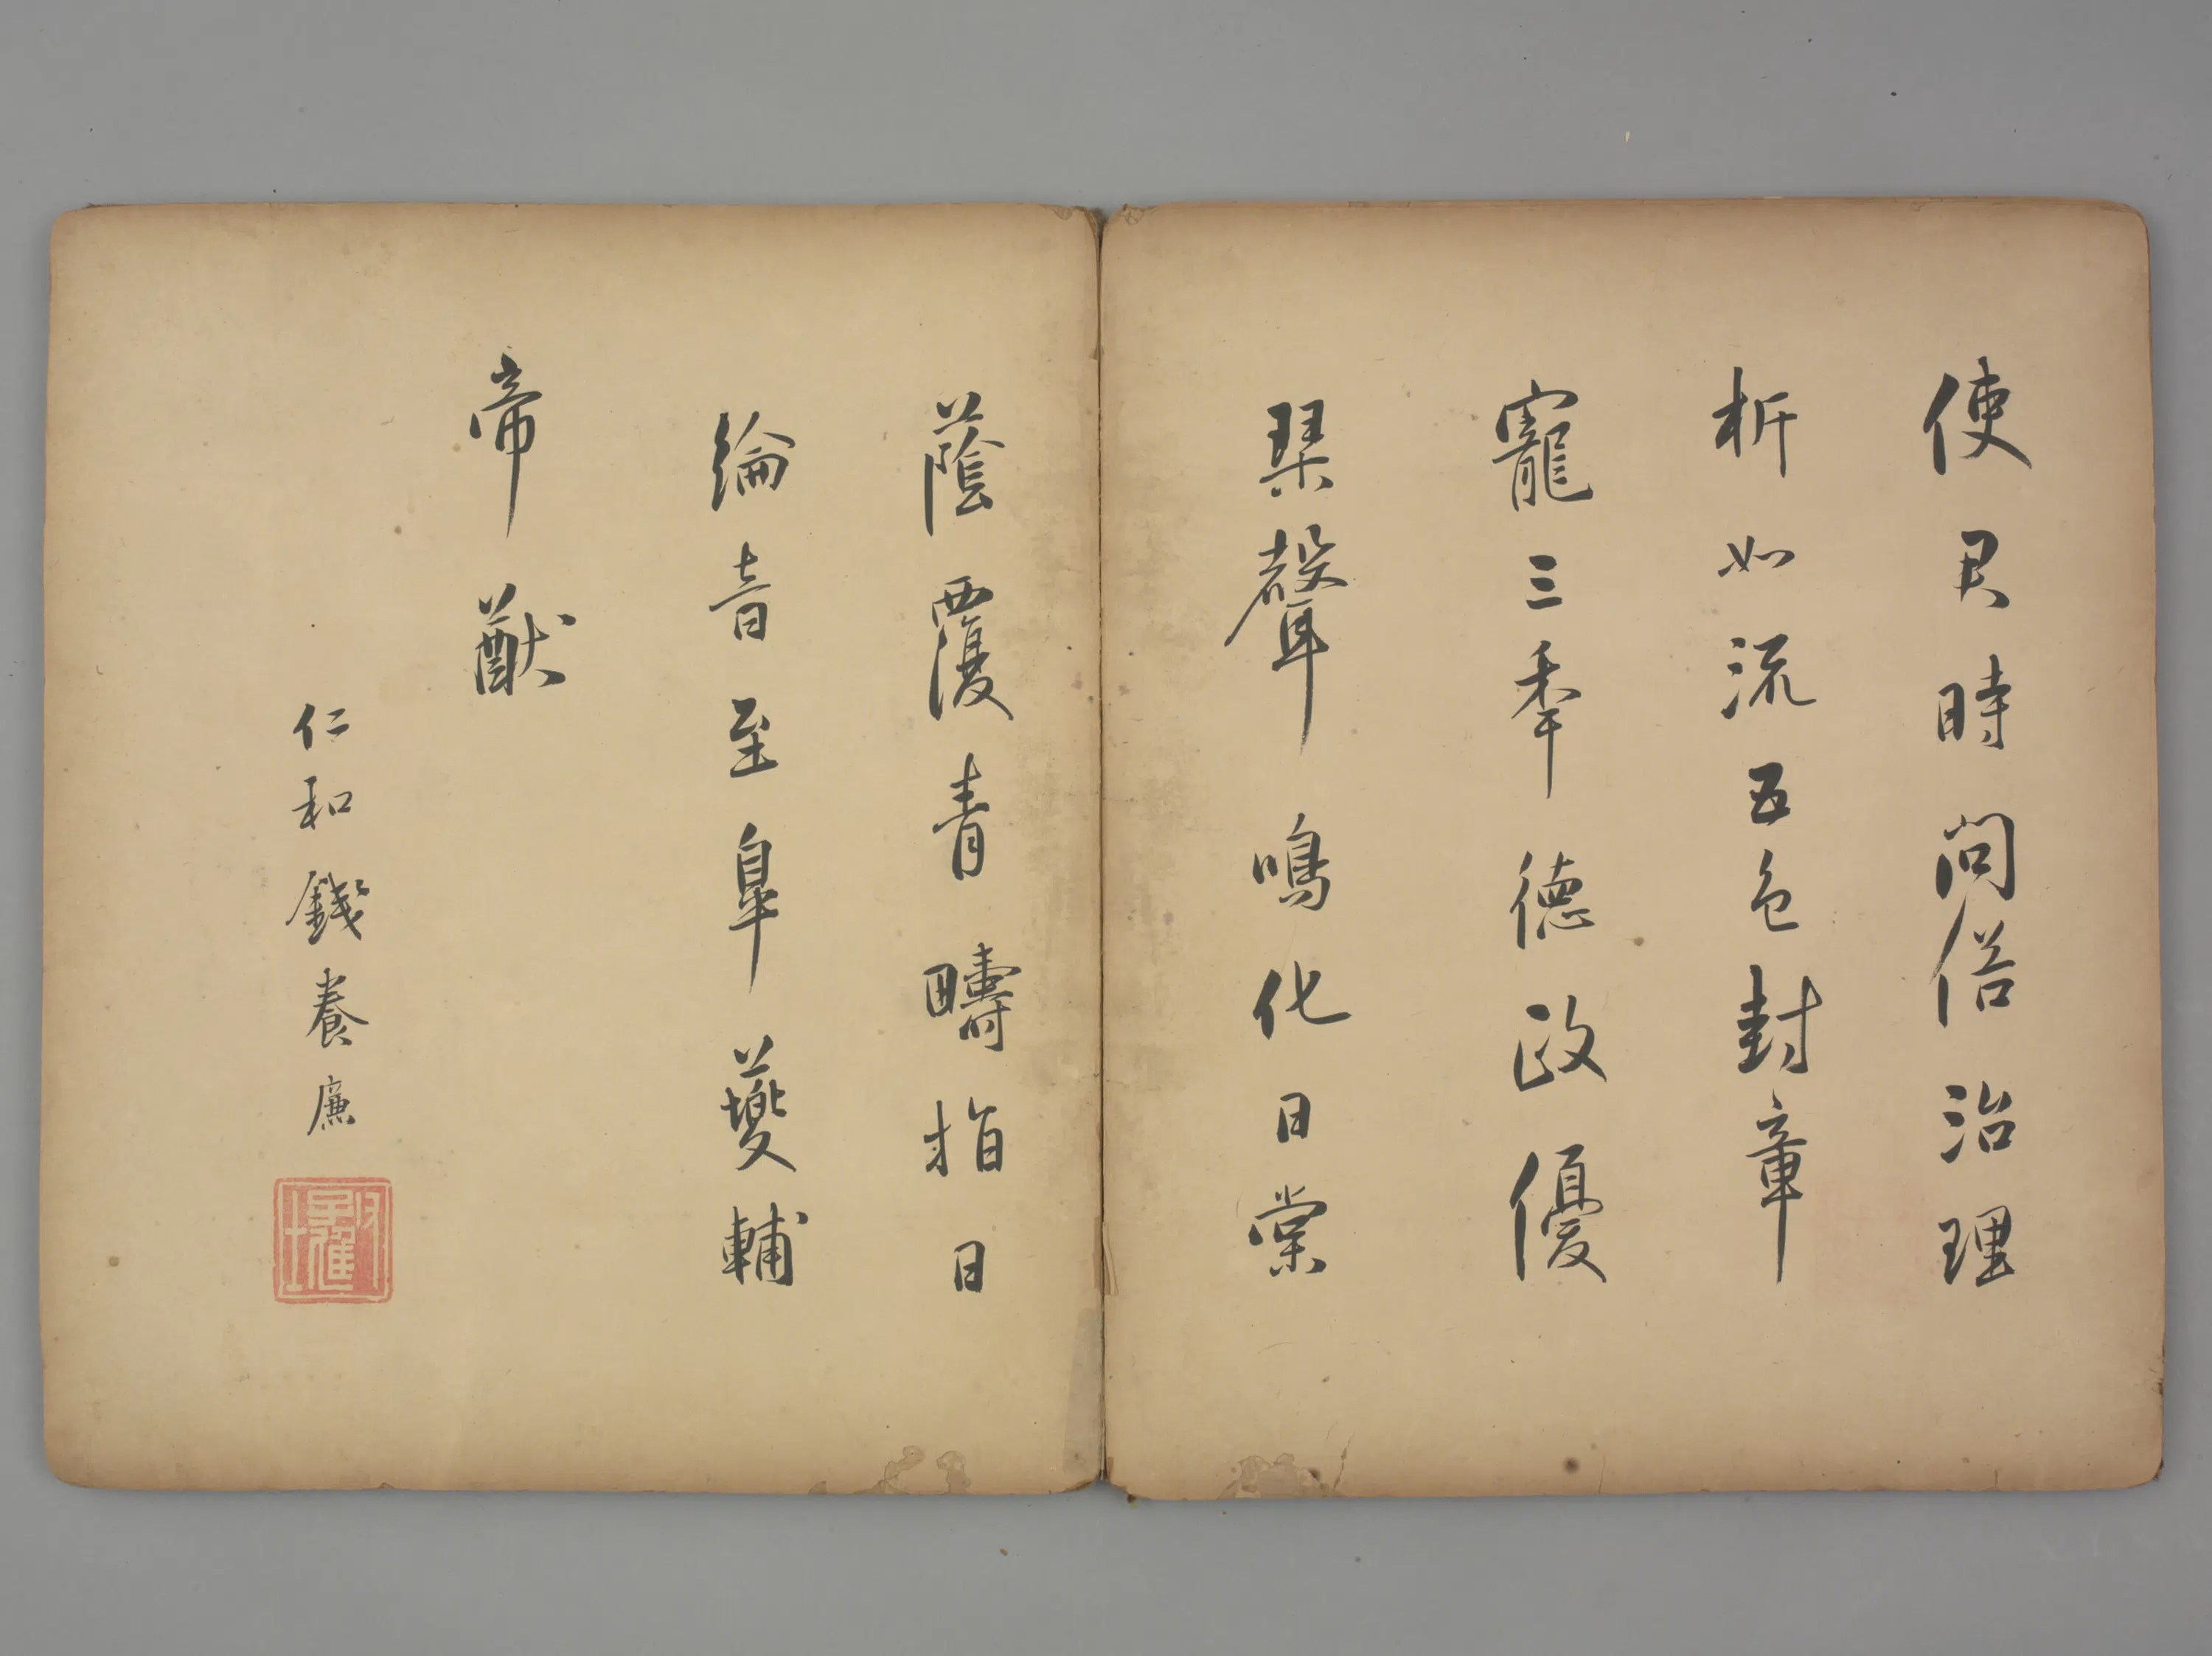 使君時問俗治理
析如流五色封章
寵三秊德政優
琹聲鳴化日棠
蔭覆青疇指日
綸音至臯夔輔
帝猷
仁和錢養廉